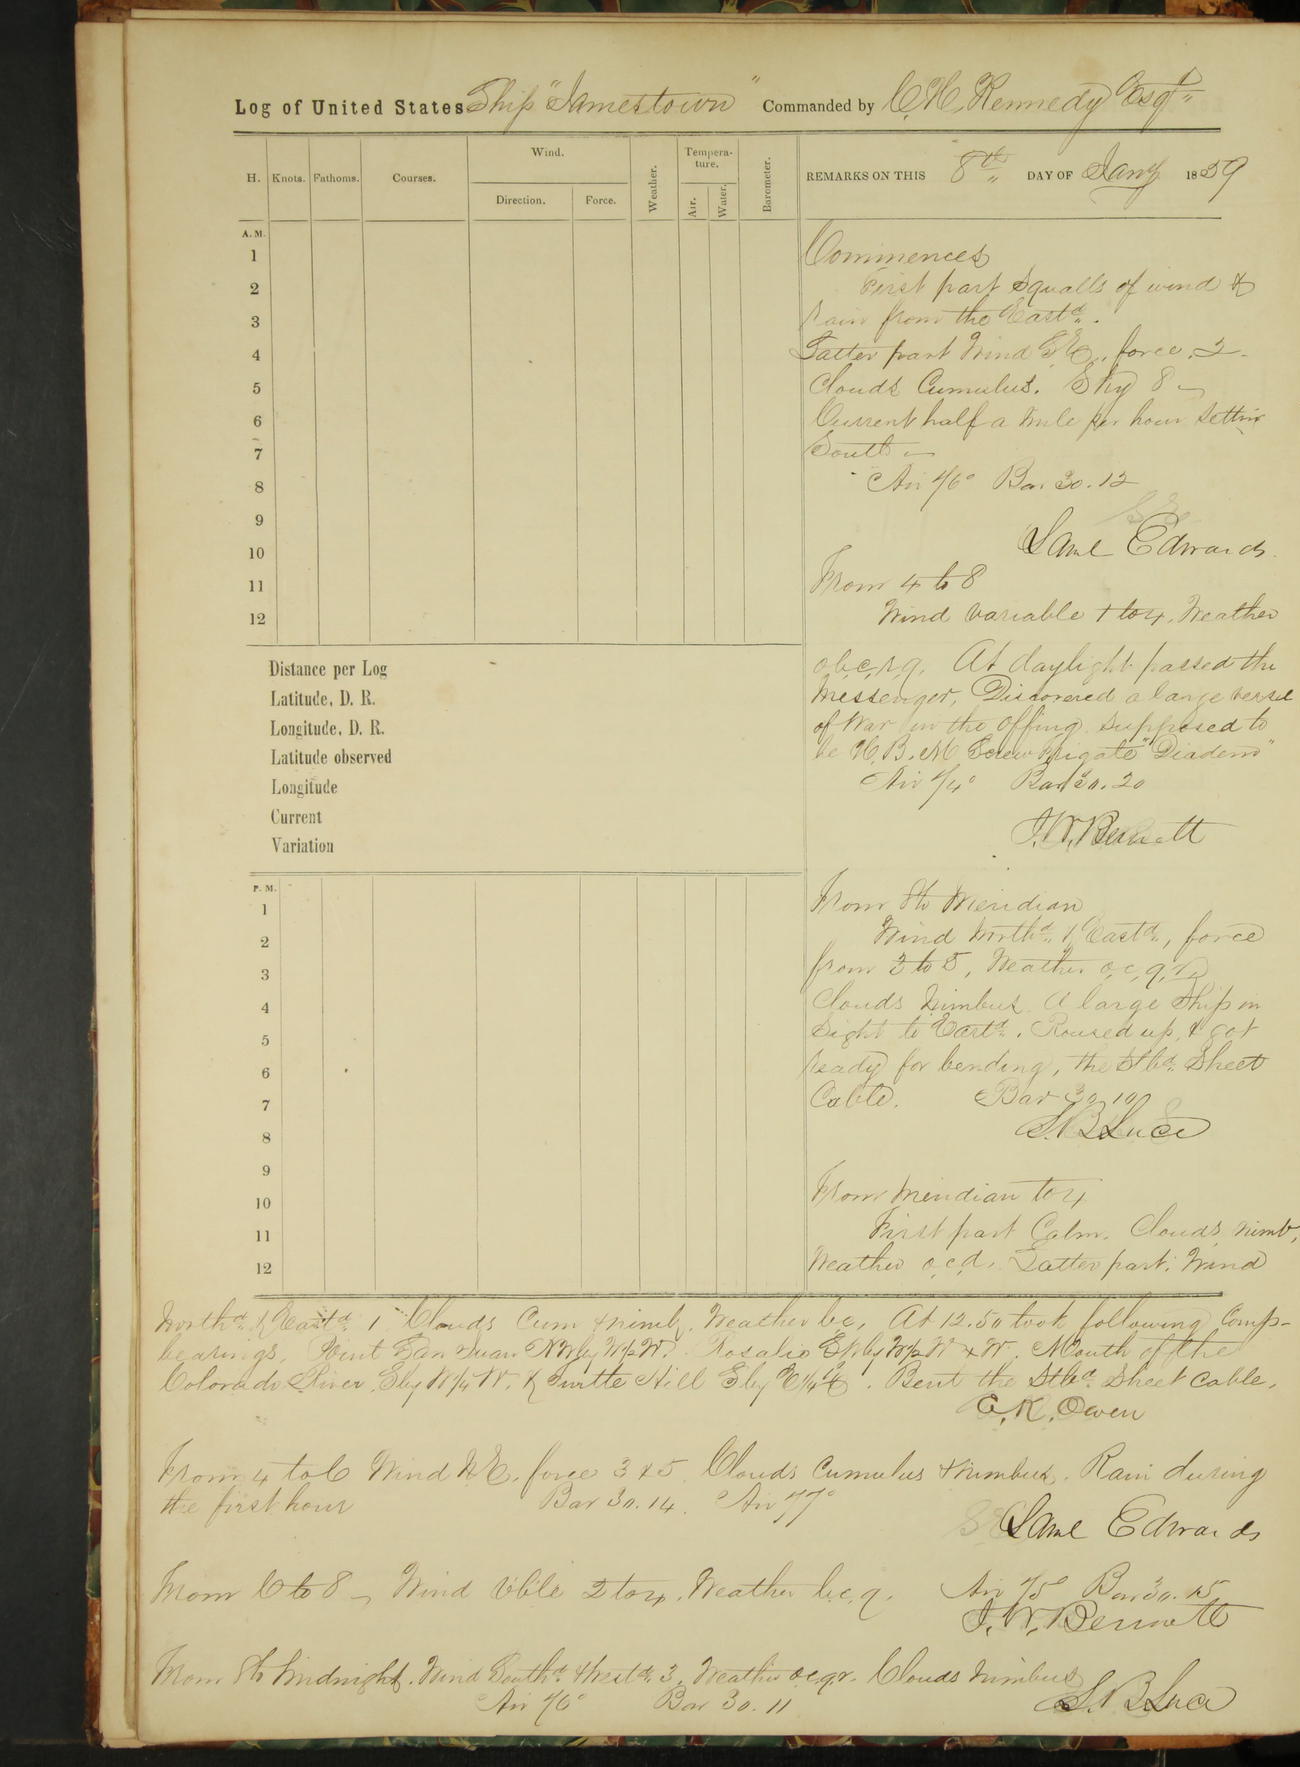 Log of United States Ship "Jamestown" Commanded by C. H. Kennedy Esqr
H. Knots. Fathoms. Courses. Wind. Direction. Force. Weather. Tempera-ture. Air. Water. Barometer. REMARKS ON THIS 8th DAY OF Jany 1859
A.M.
1
2
3
4
5
6
7
8
9
10
11
12
Distance per Log
Latitude, D. R.
Longitude, D. R.
Latitude observed
Longitude
Current
Variation
P.M.
1
2
3
4
5
6
7
8
9
10
11
12
Commences
First part squalls of wind &
rain from the Eastd.
Latter part Wind S.E., force. 2.
Clouds Cumulus. Sky 8
Current half a mile per hour setting
South
Air 76° Bar 30.12
Saml Edwards
From 4 to 8
Wind variable 1 to 4. Weather
o.b.c.r.q. At daylight passed the
Messenger. Discovered a large vessel
of War in the Offing supposed to
be H.B.M. Screw Frigate "Diadem"
Air 74° Bar 30.20
J. W. Bennett
From 8 to Meridian
Wind Northd & Eastd, force
from 2 to 5, Weather o,c,q,r,
Clouds Nimbus. A large Ship in
sight to Eastd. Roused up, & got
ready for bending, the Stbd. Sheet
Cable. Bar 30.10
S. B. Luce
From Meridian to 4
First part Calm. Clouds, nimb,
Weather o,c,d. Latter part. Wind
Northd & Eastd 1 Clouds Cum & nimb. Weather bc, At 12.50 took following Comp-
bearings, Point San Juan NW by W½W. Rosalio by W½W & W. Mouth of the
Colorado River, S by W¼W. & Turtle Hill S by E¼E. Bent the Stbd Sheet Cable.
A. K. Owen
From 4 to 6 Wind N.E. force 3 & 5 Clouds Cumulus & Nimbus. Rain during
the first hour Bar 30.14. Air 77°
Saml Edwards
From 6 to 8 Wind Vble 2 to 4. Weather b.c.q. Air 75° Bar 30.15
J. W. Bennett
From 8 to Midnight. Wind Southd & Westd 3, Weather o.c.q.r. Clouds Nimbus
Air 76° Bar 30.11 S. B. Luce